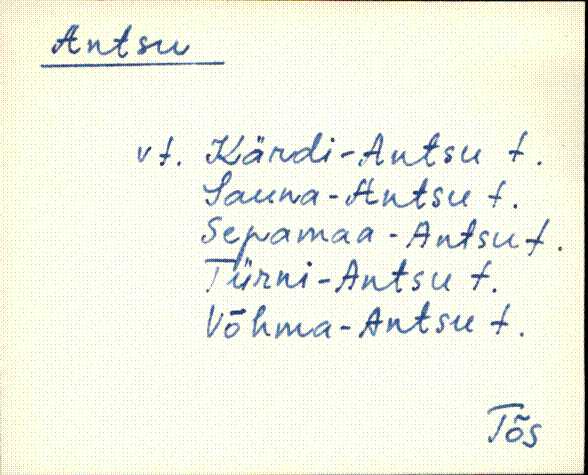 Antsu
vt. Kärdi-Antsu t.
Sauna-Antsu t.
Sepamaa-Antsu t.
Türni-Antsu t.
Võhma-Antsu t.
Tõs